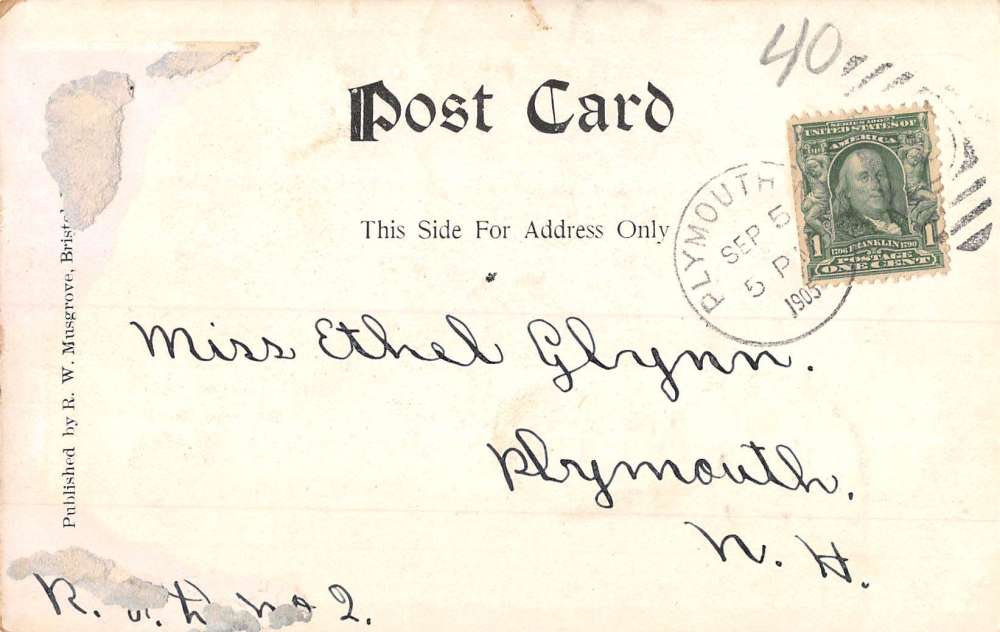 40
Post Card
SERIES 1902
UNITED STATES OF
AMERICA
1 1706 FRANKLIN 1790 1
POSTAGE
ONE CENT
PLYMOUTH
SEP 5
5 P
1905
This Side For Address Only
Published by R. W. Musgrove,
Miss Ethel Glynn.
Plymouth.
N. H.
R. No 2.